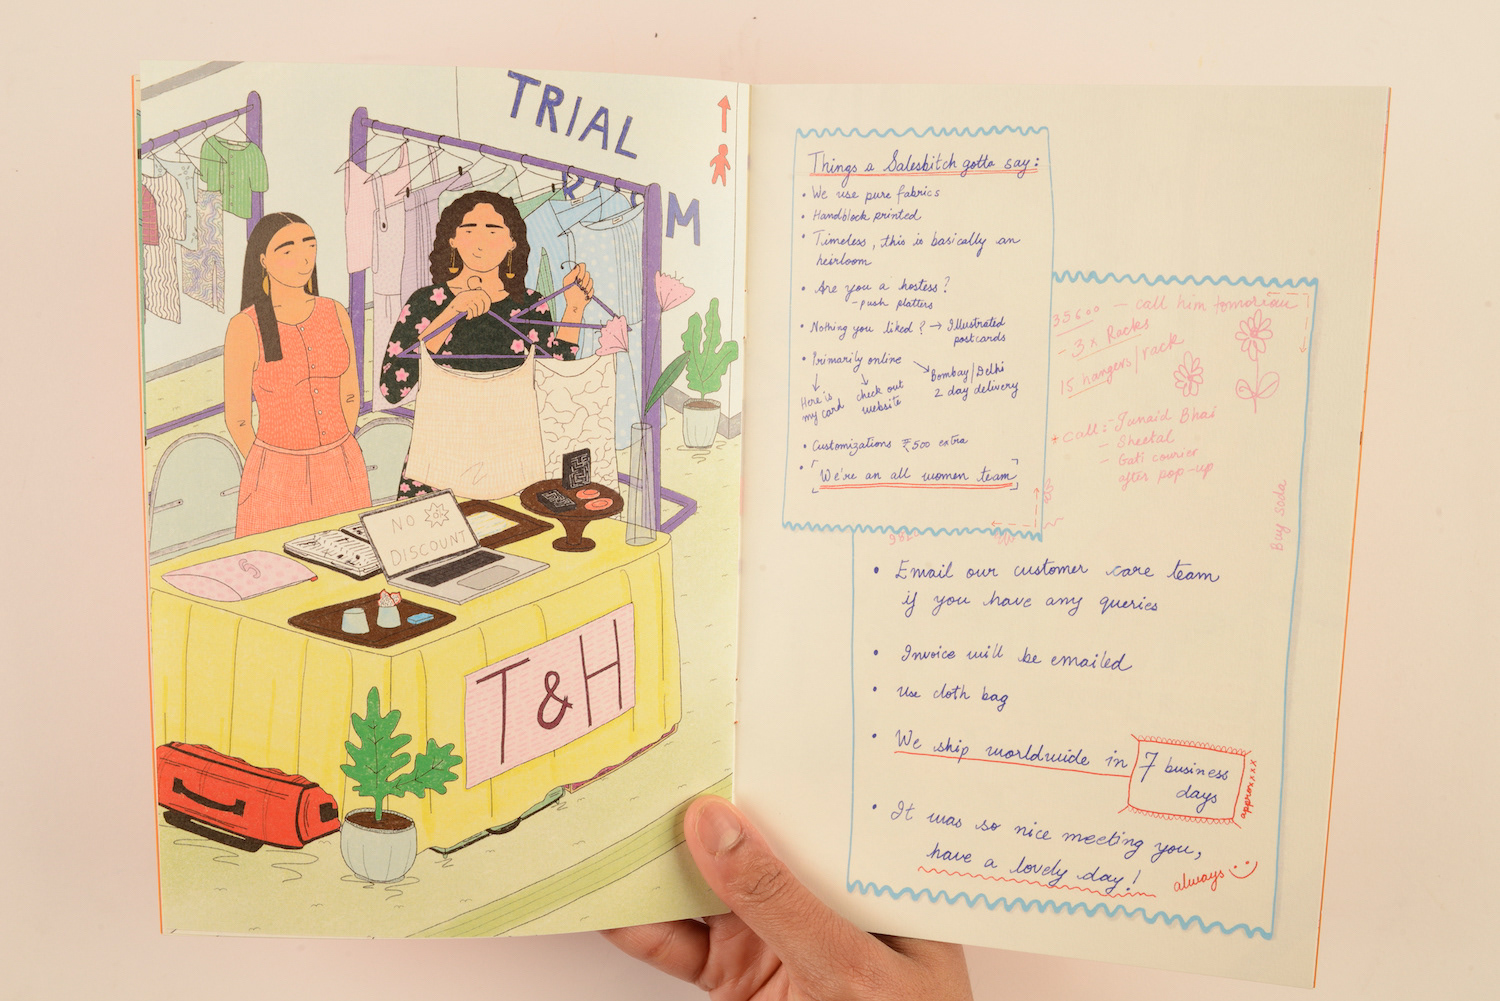 TRIAL
M
NO
DISCOUNT
T&H
Things a Salesbitch gotta say:
• We use pure fabrics
• Handblock printed
• Timeless, this is basically an
heirloom
• Are you a hostess?
- push platters
• Nothing you liked? → Illustrated
postcards
• Primarily online
Here is
my card
check out
website
Bombay/Delhi
2 day delivery
• Customizations ₹500 extra
• We're an all women team
35600 - call him tomorrow
- 3x Racks
15 hangers/rack
* call:- Junaid Bhai
- Sheetal
- Gati courier
after pop-up
Buy soda
• Email our customer care team
if you have any queries
• Invoice will be emailed
• Use cloth bag
• We ship worldwide in 7 business
days
approxxxx
• It was so nice meeting you,
have a lovely day!
always